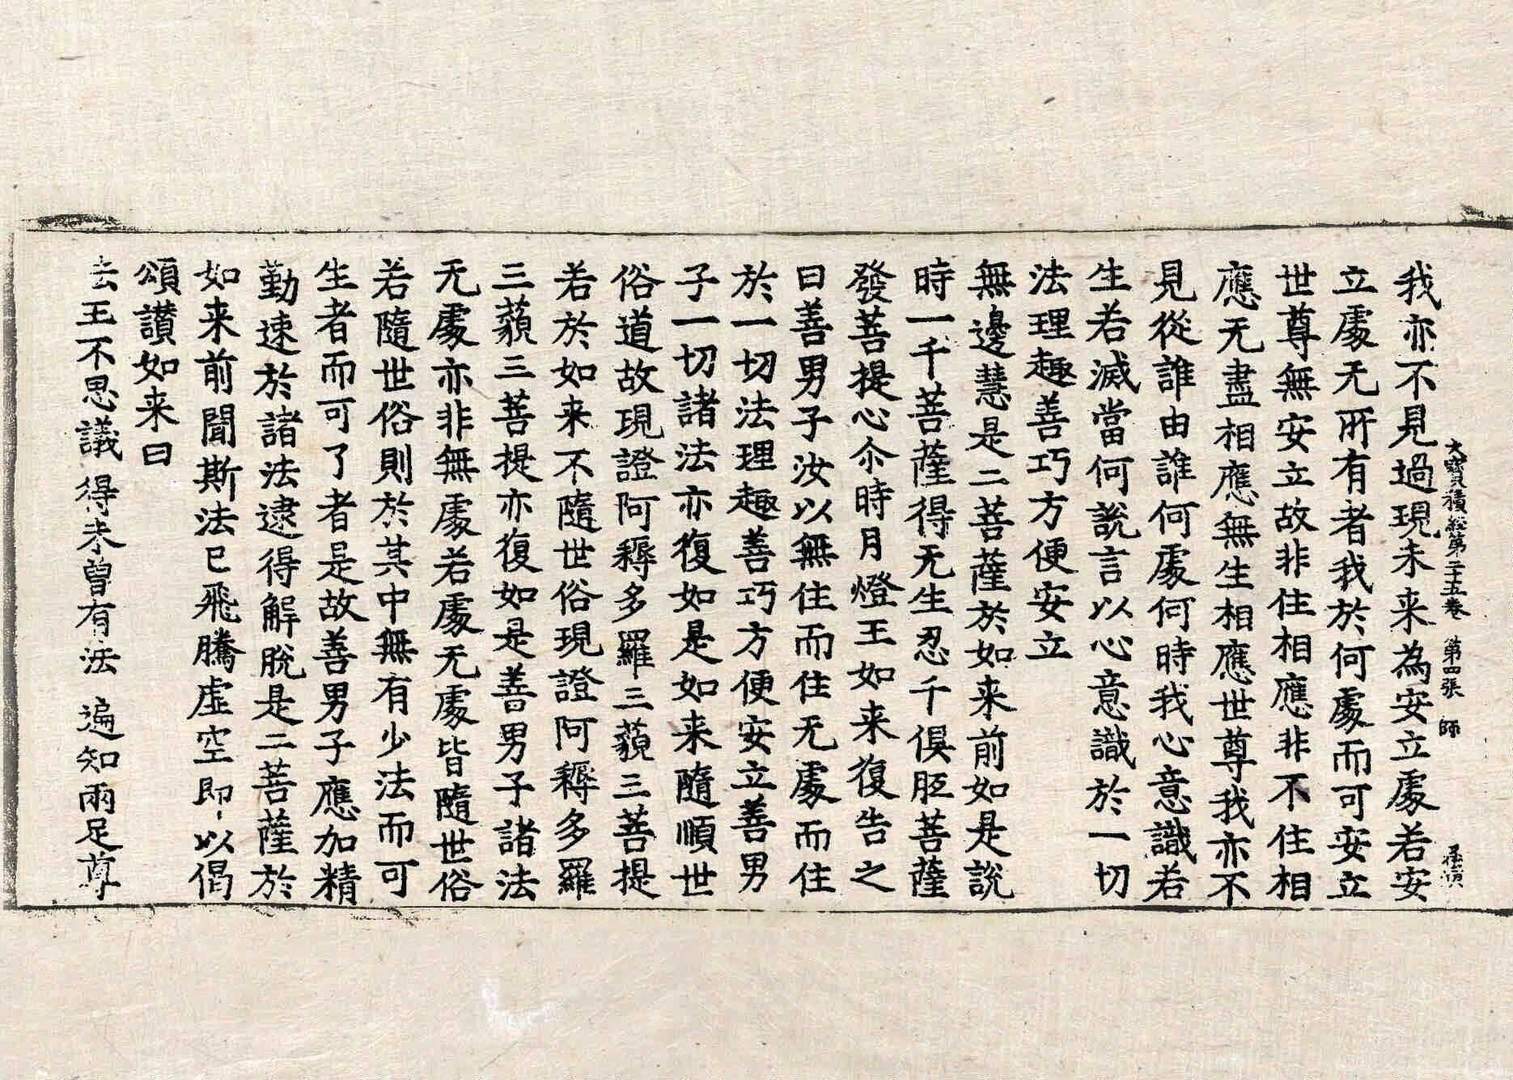 大寶積經第二十五卷 第四張 師
我亦不見過現未来為安立處若安
立處无所有者我於何處而可安立
世尊無安立故非住相應非不住相
應无盡相應無生相應世尊我亦不
見從誰由誰何處何時我心意識若
生若滅當何說言以心意識於一切
法理趣善巧方便安立
無邊慧是二菩薩於如来前如是說
時一千菩薩得无生忍千俱胝菩薩
發菩提心尒時月燈王如来復告之
曰善男子汝以無住而住无處而住
於一切法理趣善巧方便安立善男
子一切諸法亦復如是如来隨順世
俗道故現證阿耨多羅三藐三菩提
若於如来不隨世俗現證阿耨多羅
三藐三菩提亦復如是善男子諸法
无處亦非無處若處无處皆隨世俗
若隨世俗則於其中無有少法而可
生者而可了者是故善男子應加精
勤速於諸法逮得解脫是二菩薩於
如来前聞斯法已飛騰虛空即以偈
頌讃如来曰
法王不思議 得未曾有法 遍知兩足尊